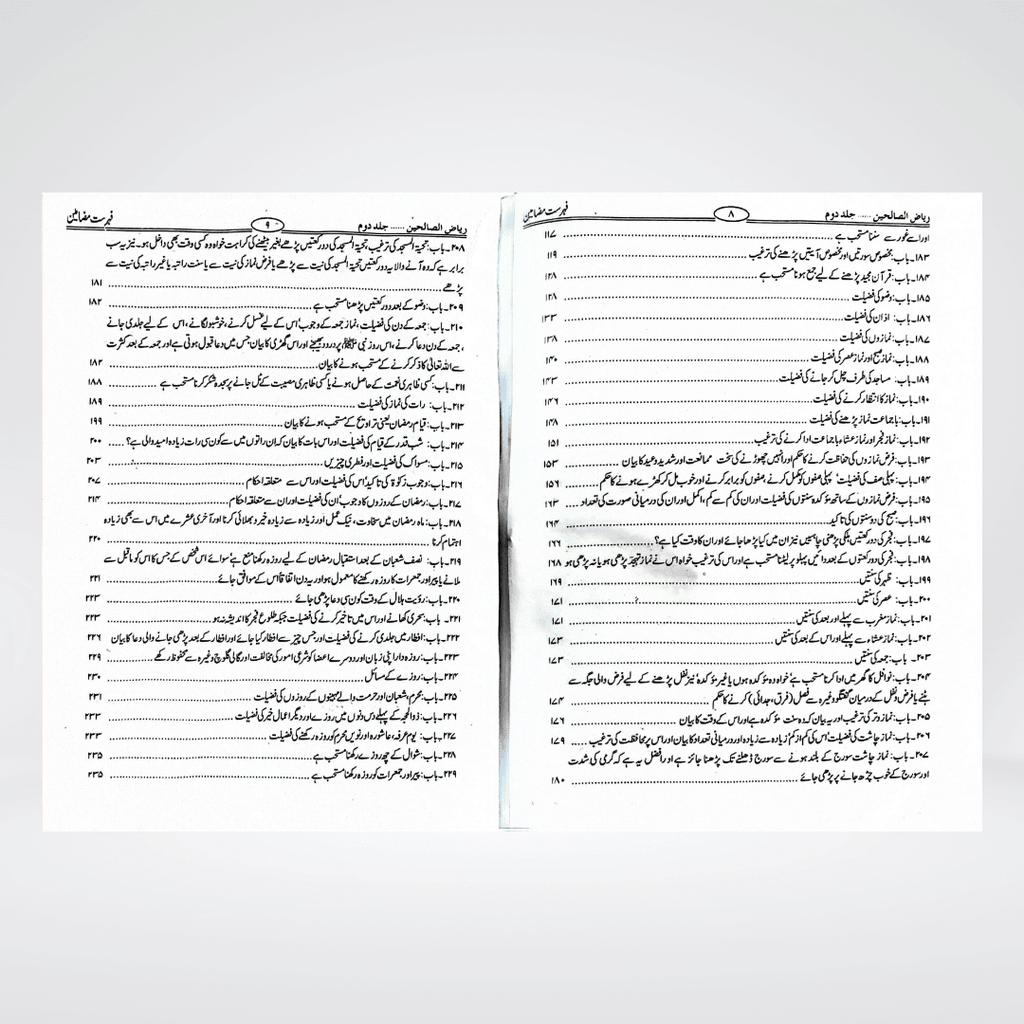 ریاض الصالحین ...... جلد دوم ۸ فہرست مضامین
اور اسے غور سے سننا مستحب ہے ۱۱۷
۱۸۳۔باب: مخصوص سورتیں اور مخصوص آیتیں پڑھنے کی ترغیب ۱۱۹
۱۸۴۔باب: قرآن مجید پڑھنے کے لیے جمع ہونا مستحب ہے ۱۲۸
۱۸۵۔باب: وضو کی فضیلت ۱۲۸
۱۸۶۔باب: اذان کی فضیلت ۱۳۳
۱۸۷۔باب: نمازوں کی فضیلت ۱۳۸
۱۸۸۔باب: نماز صبح اور نماز عصر کی فضیلت ۱۴۰
۱۸۹۔باب: مساجد کی طرف چل کر جانے کی فضیلت ۱۴۳
۱۹۰۔باب: نماز کا انتظار کرنے کی فضیلت ۱۴۶
۱۹۱۔باب: با جماعت نماز پڑھنے کی فضیلت ۱۴۸
۱۹۲۔باب: نماز فجر اور نماز عشاء با جماعت ادا کرنے کی ترغیب ۱۵۱
۱۹۳۔باب: فرض نمازوں کی حفاظت کرنے کا حکم اور انہیں چھوڑنے کی سخت ممانعت اور شدید وعید کا بیان ۱۵۳
۱۹۴۔باب: پہلی صف کی فضیلت، پہلی صفوں کو مکمل کرنے، صفوں کو برابر کرنے اور خوب مل کر کھڑے ہونے کا حکم ۱۵۶
۱۹۵۔باب: فرض نمازوں کے ساتھ مؤکدہ سنتوں کی فضیلت اور ان کی کم سے کم، اکمل اور ان کی درمیانی صورت کی تعداد ۱۶۳
۱۹۶۔باب: صبح کی دو سنتوں کی تاکید ۱۶۴
۱۹۷۔باب: فجر کی دو رکعتیں ہلکی پڑھنی چاہییں نیز ان میں کیا پڑھا جائے اور ان کا وقت کیا ہے؟ ۱۶۶
۱۹۸۔باب: فجر کی دو رکعتوں کے بعد دائیں پہلو پر لیٹنا مستحب ہے اور اس کی ترغیب خواہ اس نے نماز تہجد پڑھی ہو یا نہ پڑھی ہو ۱۶۸
۱۹۹۔باب: ظہر کی سنتیں ۱۶۹
۲۰۰۔باب: عصر کی سنتیں ۱۷۱
۲۰۱۔باب: نماز مغرب سے پہلے اور بعد کی سنتیں ۱۷۱
۲۰۲۔باب: نماز عشاء سے پہلے اور اس کے بعد کی سنتیں ۱۷۳
۲۰۳۔باب: جمعہ کی سنتیں ۱۷۳
۲۰۴۔باب: نوافل کا گھر میں ادا کرنا مستحب ہے، خواہ وہ مؤکدہ ہوں یا غیر مؤکدہ، نیز نفل پڑھنے کے لیے فرض والی جگہ سے
ہٹنے یا فرض و نفل کے درمیان گفتگو وغیرہ سے فصل (فرق، جدائی) کرنے کا حکم ۱۷۴
۲۰۵۔باب: نماز وتر کی ترغیب اور یہ بیان کہ وہ سنت مؤکدہ ہے اور اس کے وقت کا بیان ۱۷۶
۲۰۶۔باب: نماز چاشت کی فضیلت، اس کی کم از کم، زیادہ سے زیادہ اور درمیانی تعداد کا بیان اور اس پر محافظت کی ترغیب ۱۷۹
۲۰۷۔باب: نماز چاشت سورج کے بلند ہونے سے سورج ڈھلنے تک پڑھنا جائز ہے اور افضل یہ ہے کہ گرمی کی شدت
اور سورج کے خوب چڑھ جانے پر پڑھی جائے ۱۸۰
ریاض الصالحین ...... جلد دوم ۹ فہرست مضامین
۲۰۸۔باب: تحیۃ المسجد کی ترغیب، تحیۃ المسجد کی دو رکعتیں پڑھے بغیر بیٹھنے کی کراہت خواہ وہ کسی وقت بھی داخل ہو۔ نیز یہ سب
برابر ہے کہ وہ آنے والا یہ دو رکعتیں تحیۃ المسجد کی نیت سے پڑھے یا فرض نماز کی نیت سے یا سنت راتبہ یا غیر راتبہ کی نیت سے
پڑھے ۱۸۱
۲۰۹۔باب: وضو کے بعد دو رکعتیں پڑھنا مستحب ہے ۱۸۲
۲۱۰۔باب: جمعہ کے دن کی فضیلت، نماز جمعہ کے وجوب، اس کے لیے غسل کرنے، خوشبو لگانے، اس کے لیے جلدی جانے
، جمعہ کے دن دعا کرنے، اس روز نبی ﷺ پر درود بھیجنے اور اس گھڑی کا بیان جس میں دعا قبول ہوتی ہے اور جمعہ کے بعد کثرت
سے اللہ تعالیٰ کا ذکر کرنے کے مستحب ہونے کا بیان ۱۸۲
۲۱۱۔باب: کسی ظاہری نعمت کے حاصل ہونے یا کسی ظاہری مصیبت کے ٹل جانے پر سجدہ شکر کرنا مستحب ہے ۱۸۸
۲۱۲۔باب: رات کی نماز کی فضیلت ۱۸۹
۲۱۳۔باب: قیام رمضان یعنی تراویح کے مستحب ہونے کا بیان ۱۹۹
۲۱۴۔باب: شب قدر کے قیام کی فضیلت اور اس بات کا بیان کہ ان راتوں میں سے کون سی رات زیادہ امید والی ہے؟ ۲۰۰
۲۱۵۔باب: مسواک کی فضیلت اور فطری چیزیں ۲۰۳
۲۱۶۔باب: وجوب زکوٰۃ کی تاکید، اس کی فضیلت اور اس سے متعلقہ احکام ۲۰۷
۲۱۷۔باب: رمضان کے روزوں کا وجوب، ان کی فضیلت اور ان سے متعلقہ احکام ۲۱۴
۲۱۸۔باب: ماہ رمضان میں سخاوت، نیک عمل اور زیادہ سے زیادہ خیر و بھلائی کرنا اور آخری عشرے میں اس سے بھی زیادہ
اہتمام کرنا ۲۲۰
۲۱۹۔باب: نصف شعبان کے بعد استقبال رمضان کے لیے روزہ رکھنا منع ہے، سوائے اس شخص کے جس کا اس کو ما قبل سے
ملانے یا پیر اور جمعرات کا روزہ رکھنے کا معمول ہو اور یہ دن اتفاقاً اس کے موافق جائے ۲۲۱
۲۲۰۔باب: رؤیت ہلال کے وقت کون سی دعا پڑھی جائے ۲۲۳
۲۲۱۔باب: سحری کھانے اور اس میں تاخیر کرنے کی فضیلت جبکہ طلوع فجر کا اندیشہ نہ ہو ۲۲۳
۲۲۲۔باب: افطار میں جلدی کرنے کی فضیلت اور جس چیز سے افطار کیا جائے اور افطار کے بعد پڑھی جانے والی دعا کا بیان ۲۲۶
۲۲۳۔باب: روزہ دار اپنی زبان اور دوسرے اعضا کو شرعی امور کی مخالفت اور گالی گلوچ وغیرہ سے محفوظ رکھے ۲۲۹
۲۲۴۔باب: روزے کے مسائل ۲۳۰
۲۲۵۔باب: محرم، شعبان اور حرمت والے مہینوں کے روزوں کی فضیلت ۲۳۱
۲۲۶۔باب: ذوالحجہ کے پہلے دس دنوں میں روزے اور دیگر اعمال خیر کی فضیلت ۲۳۳
۲۲۷۔باب: یوم عرفہ، عاشورہ اور نویں محرم کو روزہ رکھنے کی فضیلت ۲۳۳
۲۲۸۔باب: شوال کے چھ روزے رکھنا مستحب ہے ۲۳۵
۲۲۹۔باب: پیر اور جمعرات کو روزہ رکھنا مستحب ہے ۲۳۵